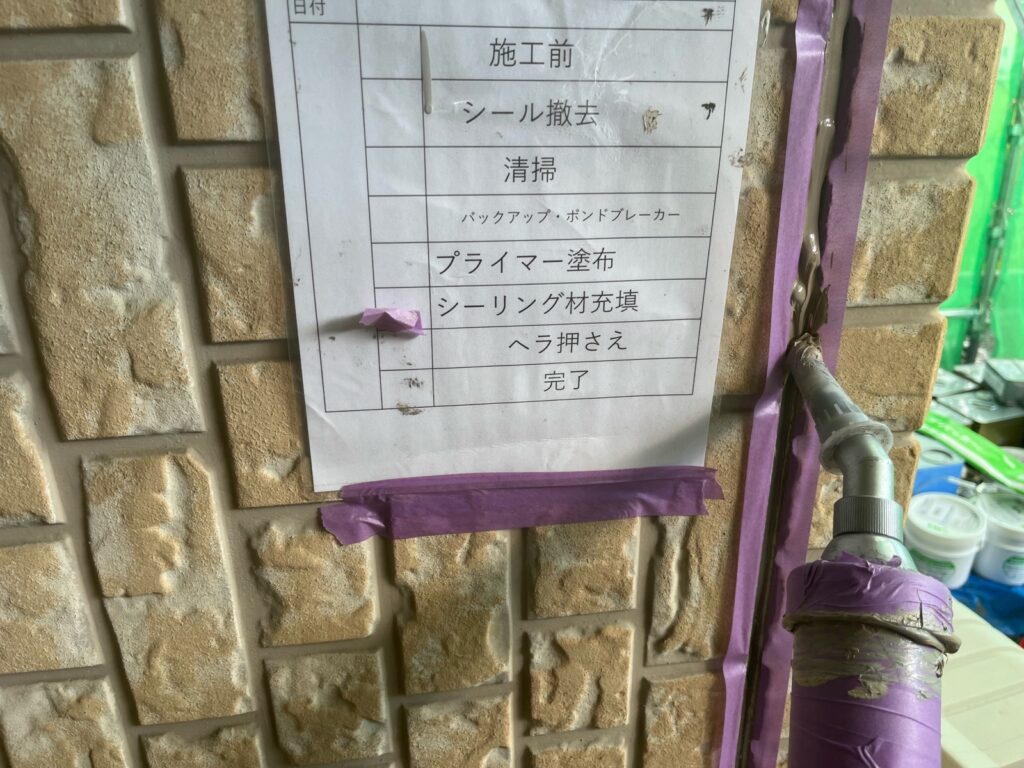 日付
施工前
シール撤去
清掃
バックアップ・ボンドブレーカー
プライマー塗布
シーリング材充填
ヘラ押さえ
完了